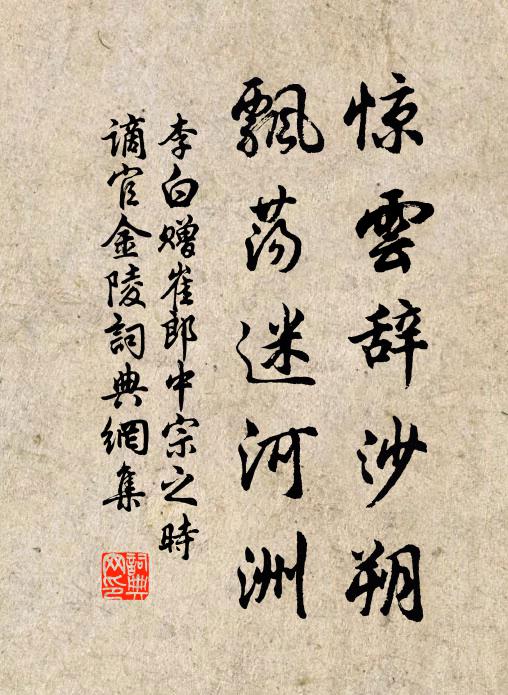 惊雲辞沙朔
飄荡迷河洲
李白赠崔郎中宗之時
謫官金陵詞典網集
詞典
网印